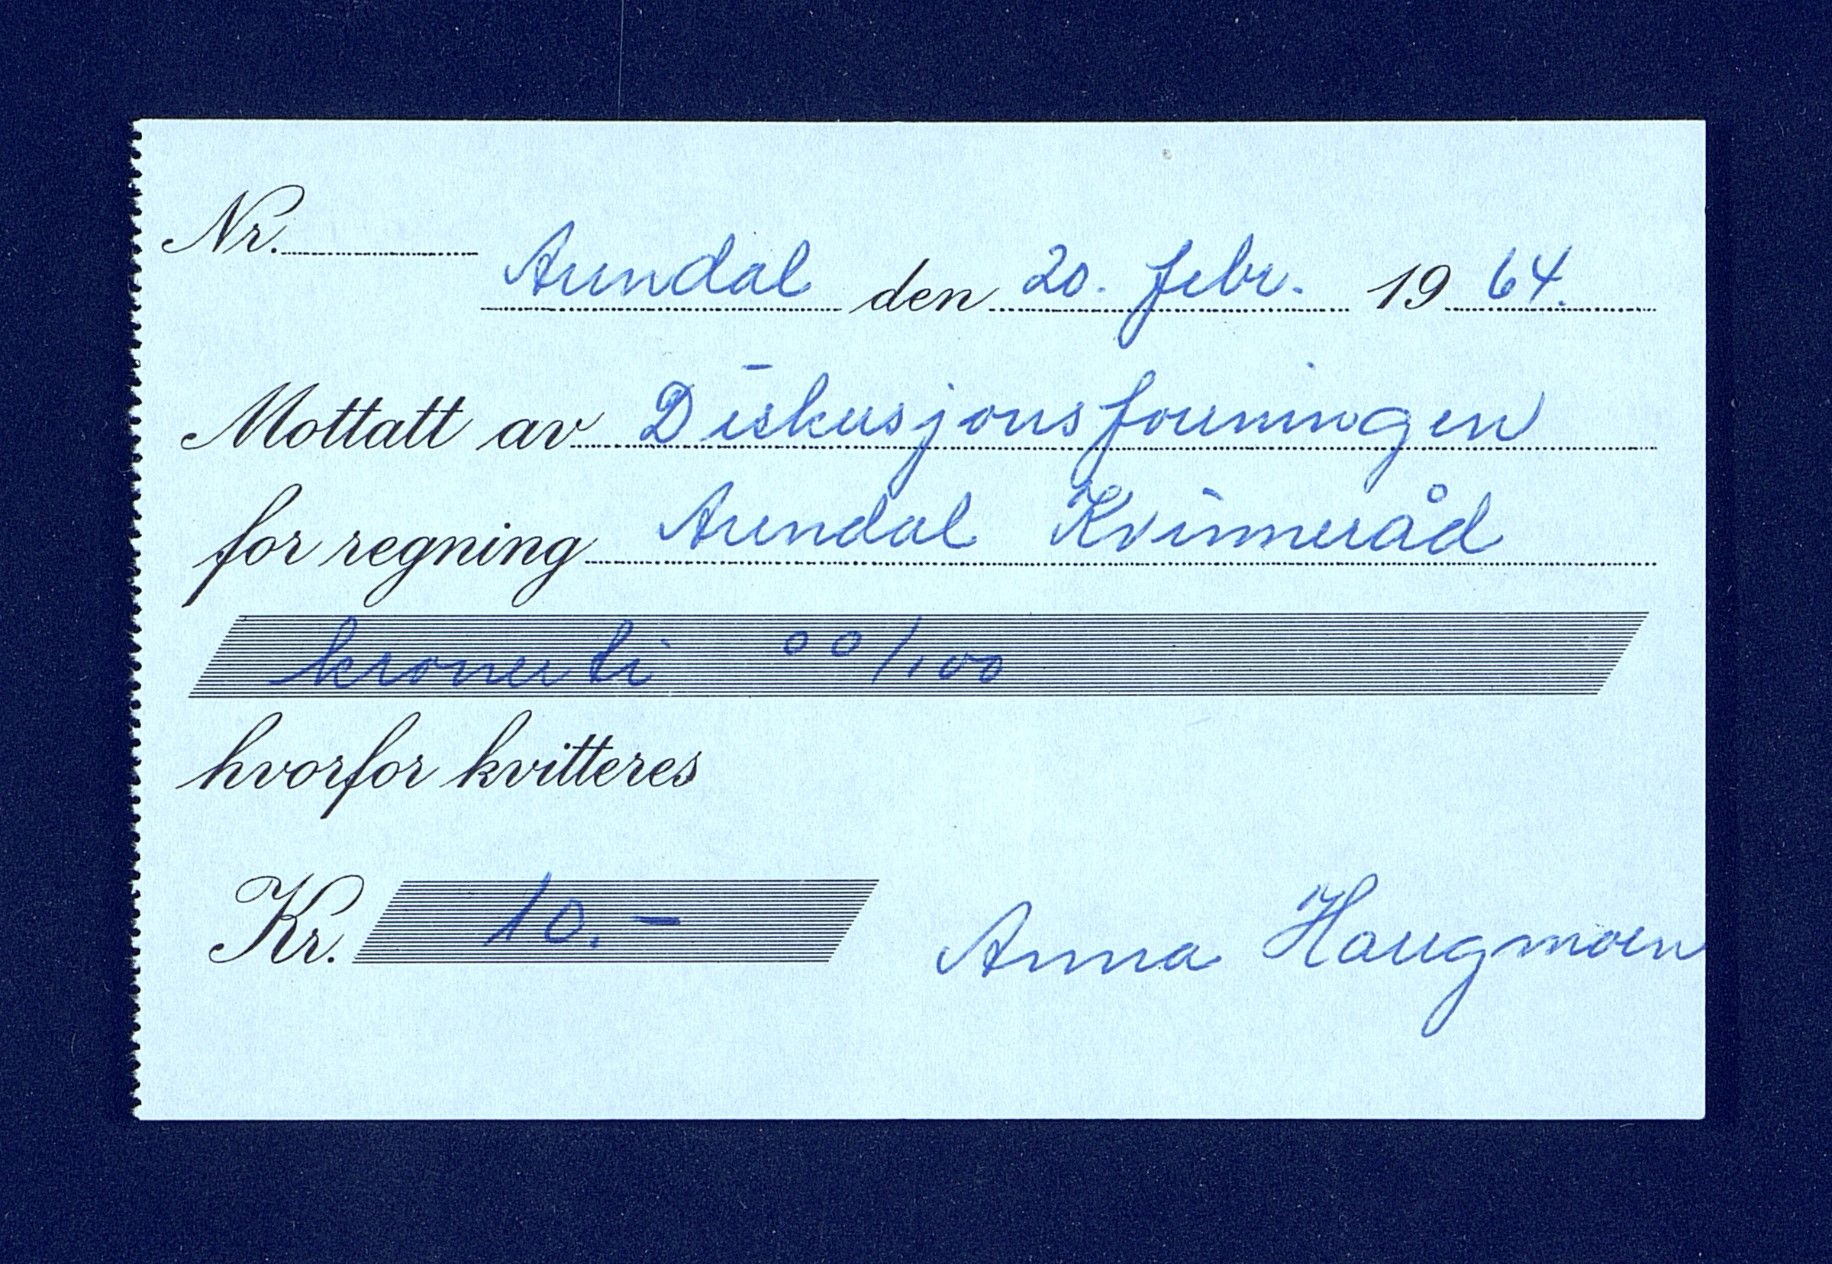 Nr.
Arendal den 20. febr. 1964.
Mottatt av Diskusjonsforeningen
for regning Arendal Kvinneråd
kroner ti 00/100
hvorfor kvitteres
Kr. 10.-
Anna Haugmoen